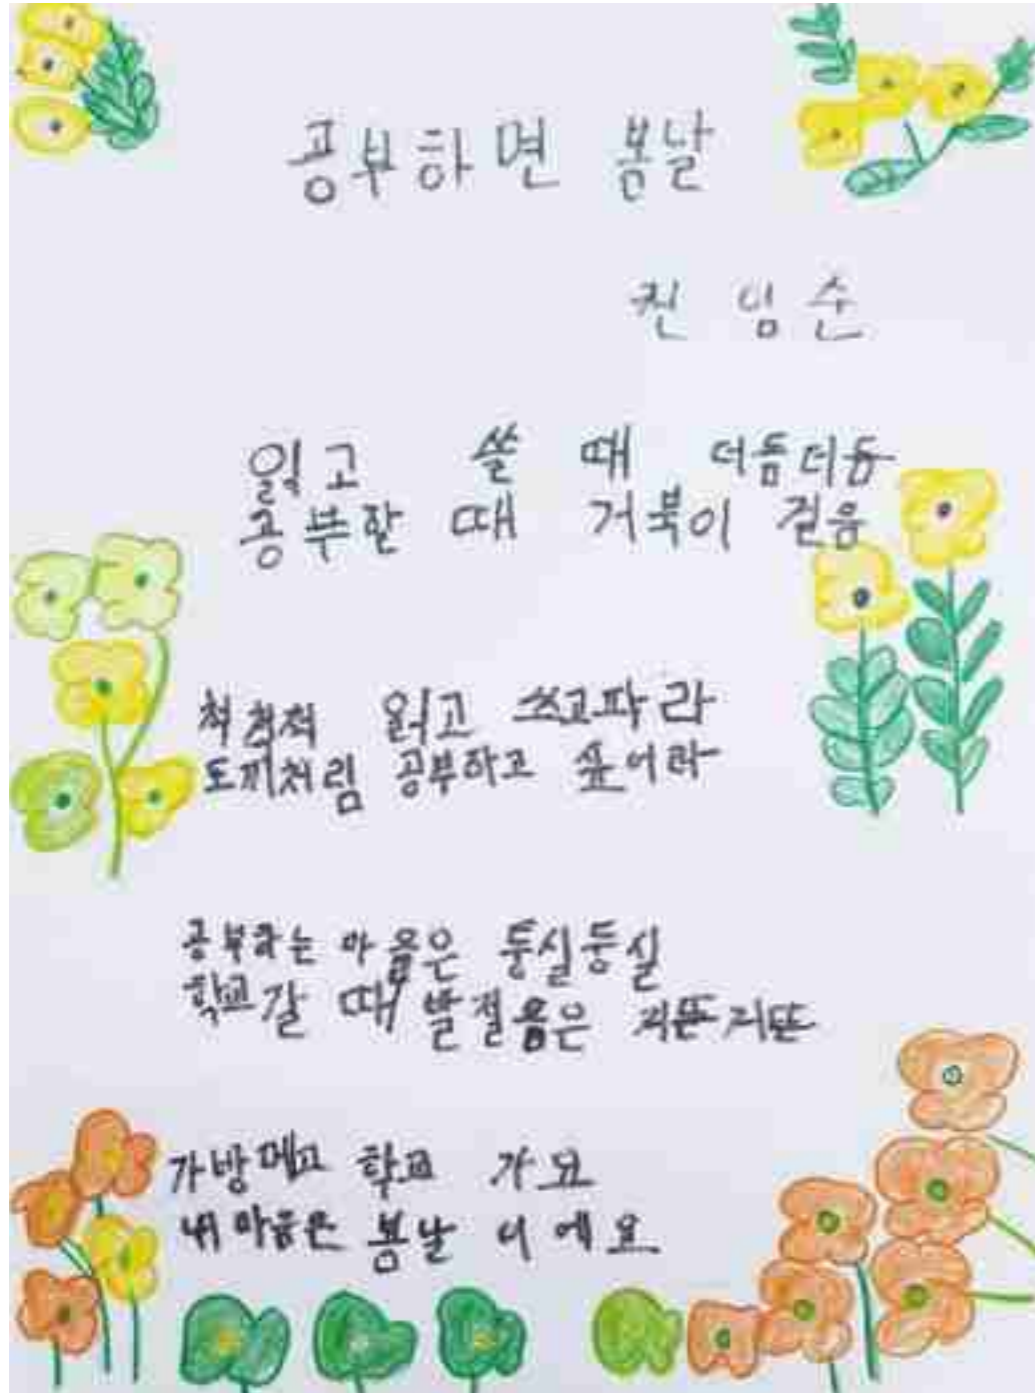 공부하면 봄날
임순
읽고 쓸 때 더듬더듬
공부할 때 거북이 걸음
척척척 읽고 쓰고파라
토끼처럼 공부하고 싶어라
공부하는 마음은 둥실둥실
학교갈 때 발걸음은 거뜬거뜬
가방메고 학교 가요
내 마음은 봄날 이에요